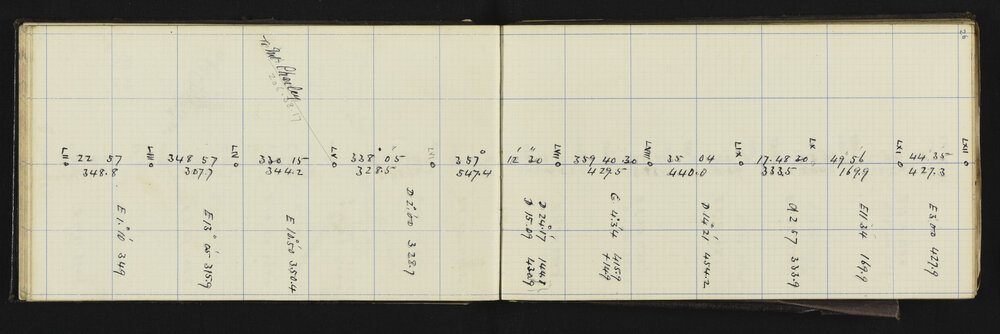 26
To Mt Charley
206.53.17
LII 22 57
348.8
LIII 348 57
307.7
LIV 330 15
344.2
LV 338° 05"
328.5
LVI 357°
547.4
12' 20"
LVII 359 40.30
429.5
LVIII 35 04
440.0
LIX 17.48 30
333.5
LX 49° 56'
169.9
LXI 44 35
427.3
LXII
E 1° 10' 349
E 13° 00' 315.9
E 10° 50' 350.4
D 2° 00' 328.7
D 24° 17' 144.8
D 15.09 430.9
E 4° 34' 415.9
+ 14.9
D 14° 21' 454.2
D 2 57 333.9
E 11 34 169.9
E 3 00 427.9